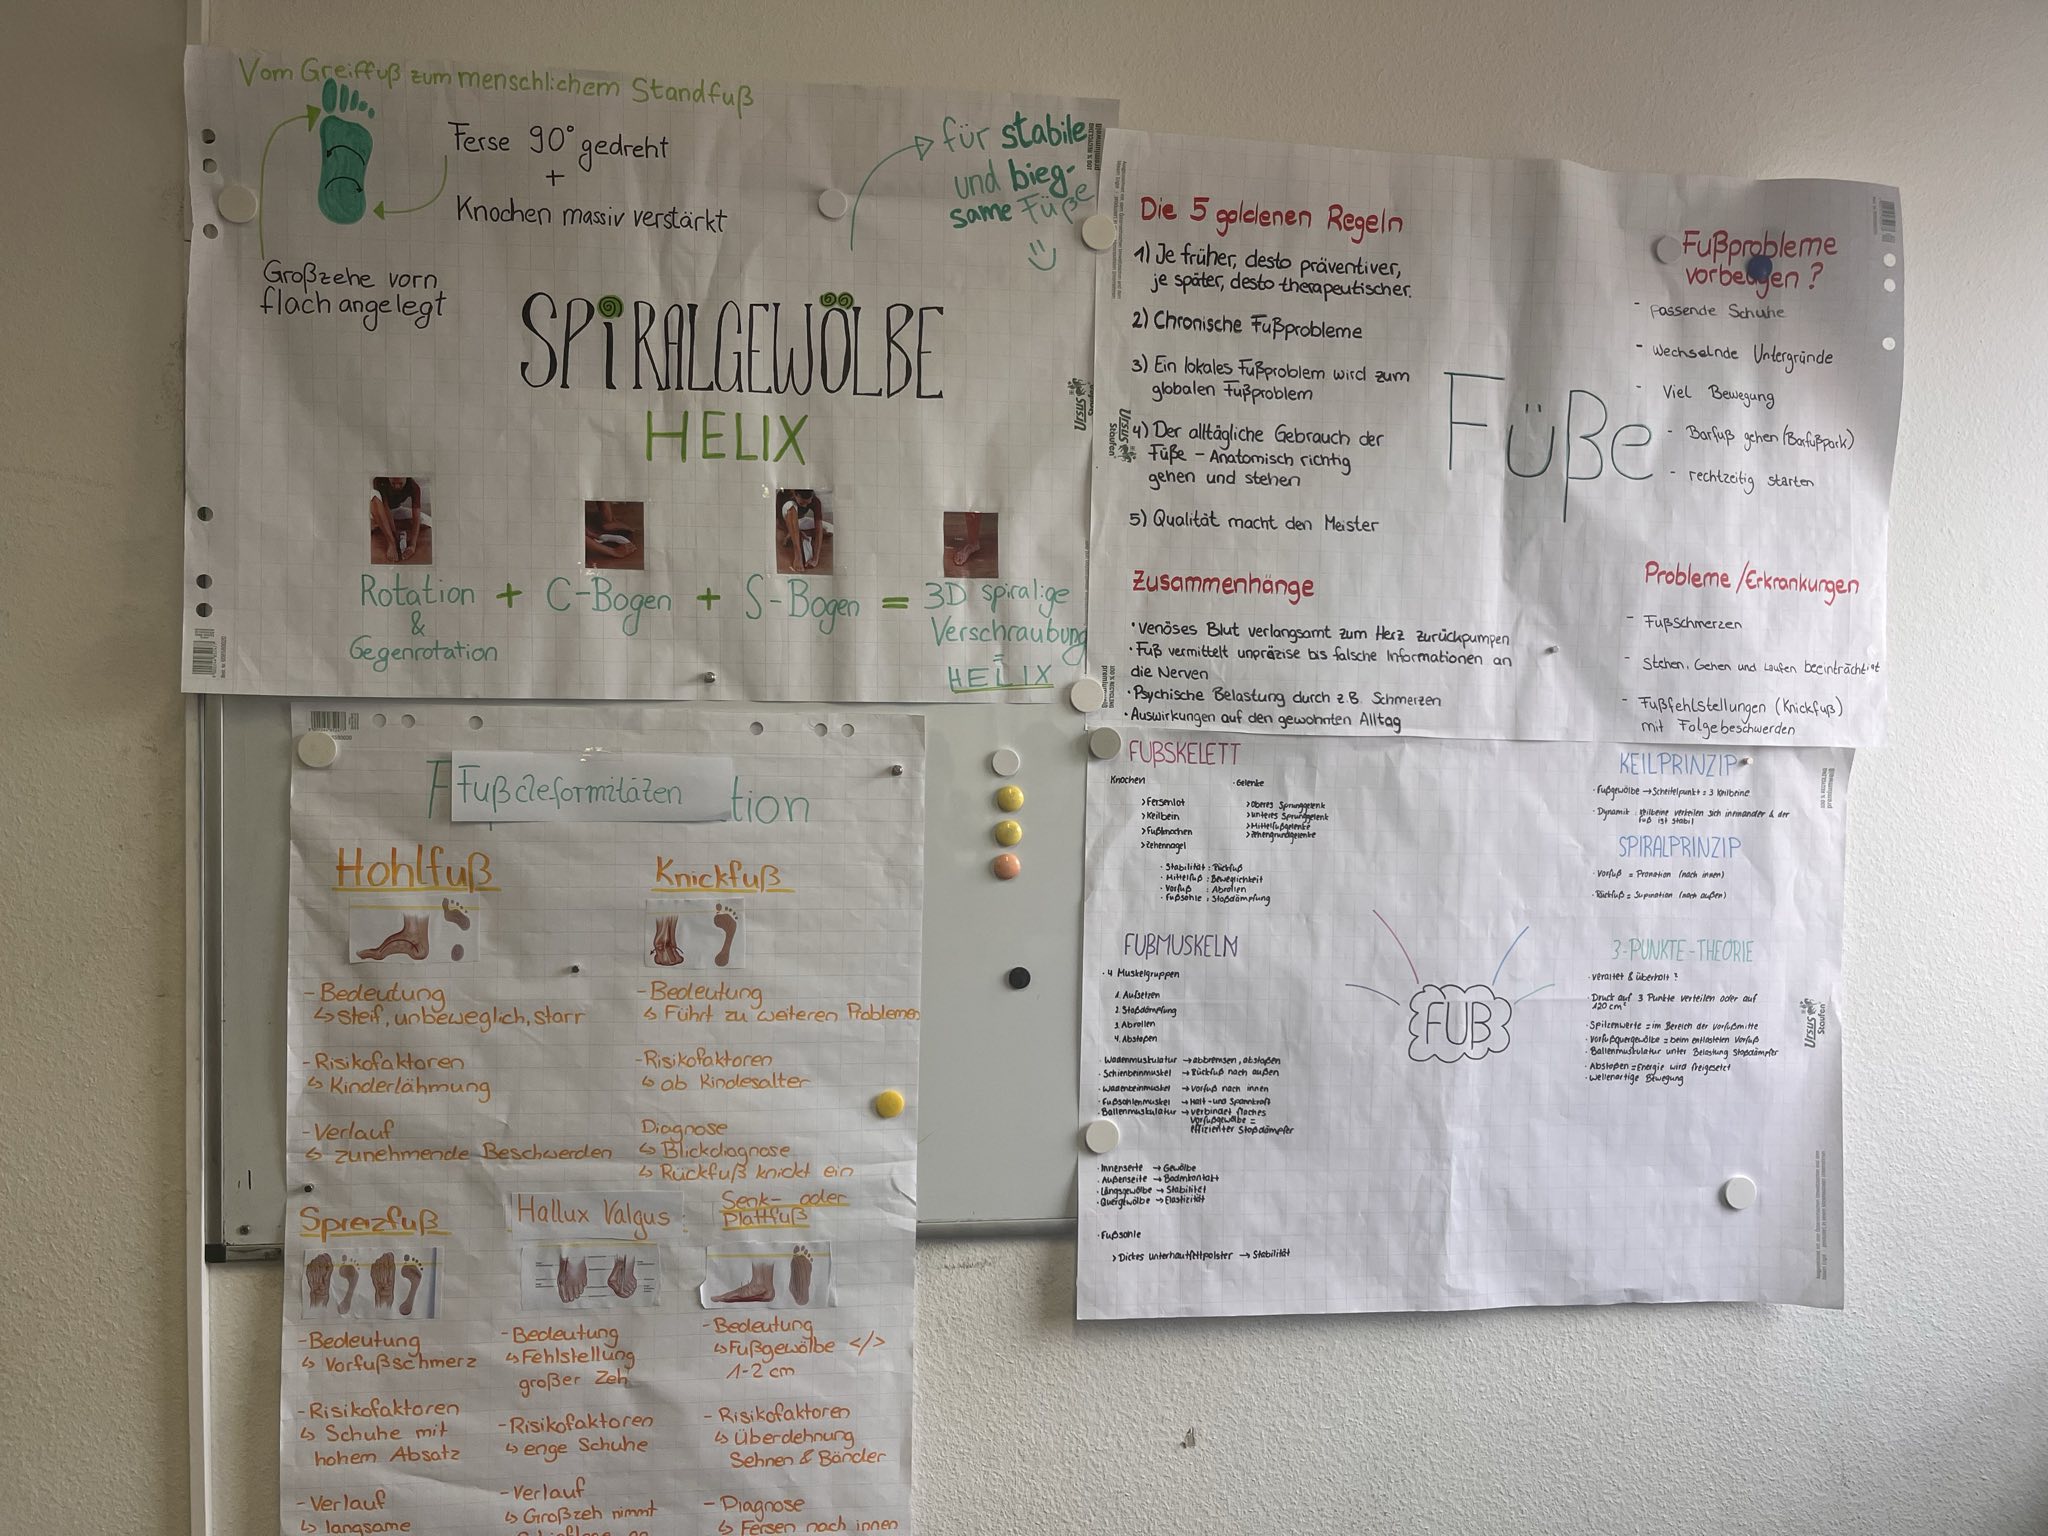 Vom Greiffuß zum menschlichem Standfuß
Ferse 90° gedreht
+
Knochen massiv verstärkt
Großzehe vorn
flach angelegt
für stabile
und bieg-
same Füße
SPiRALGEWÖLBE
HELIX
Rotation + C-Bogen + S-Bogen = 3D spiralige
&
Gegenrotation
Verschraubung
=
HELIX
Die 5 goldenen Regeln
1) Je früher, desto präventiver,
je später, desto therapeutischer.
2) Chronische Fußprobleme
3) Ein lokales Fußproblem wird zum
globalen Fußproblem
4) Der alltägliche Gebrauch der
Füße - Anatomisch richtig
gehen und stehen
5) Qualität macht den Meister
Füße
Fußprobleme
vorbeugen?
- passende Schuhe
- wechselnde Untergründe
- Viel Bewegung
- Barfuß gehen (Barfußpark)
- rechtzeitig starten
Zusammenhänge
• venöses Blut verlangsamt zum Herz zurückpumpen
• Fuß vermittelt unpräzise bis falsche Informationen an
die Nerven
• Psychische Belastung durch z.B. Schmerzen
• Auswirkungen auf den gewohnten Alltag
Probleme/Erkrankungen
- Fußschmerzen
- Stehen, Gehen und Laufen beeinträchtigt
- Fußfehlstellungen (Knickfuß)
mit Folgebeschwerden
Ursus
Staufen
Ursus
Staufen
F Fußdeformitäten tion
Hohlfuß
- Bedeutung
↳ steif, unbeweglich, starr
- Risikofaktoren
↳ Kinderlähmung
- Verlauf
↳ zunehmende Beschwerden
Knickfuß
- Bedeutung
↳ Führt zu weiteren Problemen
- Risikofaktoren
↳ ab Kindesalter
Diagnose
↳ Blickdiagnose
↳ Rückfuß knickt ein
Spreizfuß
- Bedeutung
↳ Vorfußschmerz
- Risikofaktoren
↳ Schuhe mit
hohem Absatz
- Verlauf
↳ langsame
Hallux Valgus:
- Bedeutung
↳ Fehlstellung
großer Zeh
- Risikofaktoren
↳ enge Schuhe
- Verlauf
↳ Großzeh nimmt
Senk- oder
Plattfuß
- Bedeutung
↳ Fußgewölbe </>
1-2 cm
- Risikofaktoren
↳ Überdehnung
Sehnen & Bänder
- Diagnose
↳ Fersen nach innen
FUßSKELETT
Knochen
> Fersenlot
> Keilbein
> Fußknochen
> Zehennagel
• Gelenke
> Oberes Sprunggelenk
> unteres Sprunggelenk
> Mittelfußgelenke
> Zehengrundgelenke
• Stabilität : Rückfuß
• Mittelfuß : Beweglichkeit
• Vorfuß : Abrollen
• Fußsohle : Stoßdämpfung
FUßMUSKELN
• 4 Muskelgruppen
1. Aufsetzen
2. Stoßdämpfung
3. Abrollen
4. Abstoßen
• Wadenmuskulatur → abbremsen, abstoßen
• Schienbeinmuskel → Rückfuß nach außen
• Wadenbeinmuskel → Vorfuß nach innen
• Fußsohlenmuskel → Halt- und Spannkraft
• Ballenmuskulatur → verbindet flaches
Vorfußgewölbe =
effizienter Stoßdämpfer
• Innenseite → Gewölbe
• Außenseite → Bodenkontakt
• Längsgewölbe → Stabilität
• Quergewölbe → Elastizität
• Fußsohle
> Dickes Unterhautfettpolster → Stabilität
FUß
KEILPRINZIP
• Fußgewölbe → Scheitelpunkt = 3 Keilbeine
• Dynamik : Keilbeine verteilen sich ineinander & der
Fuß ist stabil
SPIRALPRINZIP
• Vorfuß = Pronation (nach innen)
• Rückfuß = Supination (nach außen)
3-PUNKTE-THEORIE
• veraltet & überholt ?
• Druck auf 3 Punkte verteilen oder auf
120 cm²
• Spitzenwerte = im Bereich der Vorfußmitte
• Vorfußquergewölbe = beim entlasteten Vorfuß
• Ballenmuskulatur unter Belastung Stoßdämpfer
• Abstoßen = Energie wird freigesetzt
• wellenartige Bewegung
Ursus
Staufen